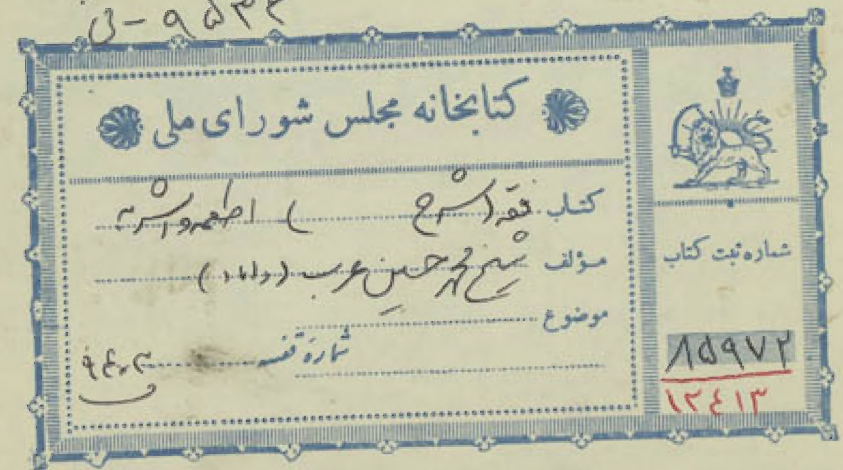 ۹۵۳۴ - ف
کتابخانه مجلس شورای ملی
کتاب فقه (شرح ) اطعمه و اشربه
مؤلف شیخ محمد حسین عرب
موضوع
شمارهٔ قفسه
شماره ثبت کتاب
۸۵۹۷۲
۱۲۴۱۳